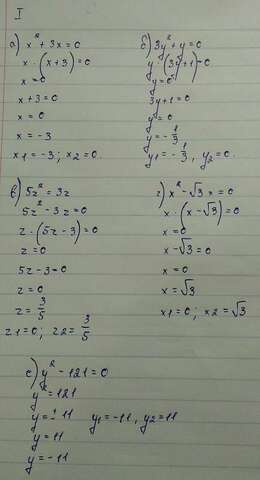 I
а) x² + 3x = 0
x · (x + 3) = 0
x = 0
x + 3 = 0
x = 0
x = -3
x1 = -3; x2 = 0.
б) 3y² + y = 0
y · (3y + 1) = 0
y = 0
3y + 1 = 0
y = 0
y = -1/3
y1 = -1/3, y2 = 0.
в) 5z² = 3z
5z² - 3z = 0
z · (5z - 3) = 0
z = 0
5z - 3 = 0
z = 0
z = 3/5
z1 = 0; z2 = 3/5
г) x² - √3 x = 0
x · (x - √3) = 0
x = 0
x - √3 = 0
x = 0
x = √3
x1 = 0; x2 = √3
е) y² - 121 = 0
y² = 121
y = ± 11 y1 = -11, y2 = 11
y = 11
y = -11